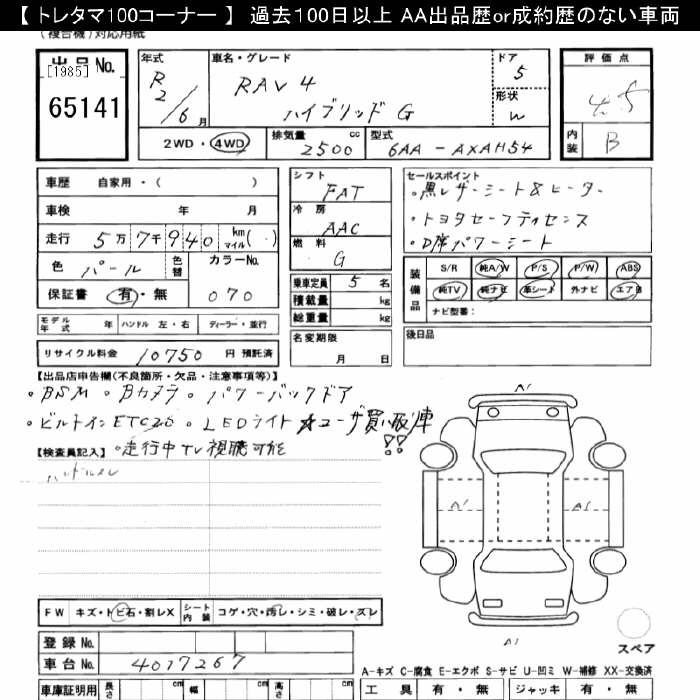 【 トレタマ100コーナー 】 過去100日以上 AA出品歴or成約歴のない車両
(複合機)対応用紙
出品 No. [1985] 65141
年式 R2/6月 車名・グレード RAV4 ハイブリッド G ドア 5 形状 W
評価点 4.5 内装 B
2WD・4WD 排気量 2500 cc 型式 6AA-AXAH54
車歴 自家用・( )
車検 年 月
走行 5万7千940 km マイル( )
色 パール 色替 カラーNo. 070
保証書 有・無
シフト FAT
冷房 AAC
燃料 G
乗車定員 5 名
積載量 kg
総重量 kg
セールスポイント
・黒レザーシート&ヒーター
・トヨタセーフティセンス
・D席パワーシート
装備品 S/R 純A/W P/S P/W ABS
純TV 純ナビ 革シート 外ナビ エアB
ナビ型番:
モデル年式 年 ハンドル 左・右 ディーラー・並行
名変期限 月 日
後日品
リサイクル料金 10750 円 預託済
【出品店申告欄(不良箇所・欠品・注意事項等)】
・BSM ・Bカメラ ・パワーバックドア
・ビルトインETC2.0 ・LEDライト ☆ユーザ買い取り車!!
・走行中TV視聴可能
【検査員記入】
ハンドルスレ
A1
A1 A1
A1
FW キズ・トビ石・割レX シート内装 コゲ・穴・汚レ・シミ・破レ・スレ
登録 No.
車台 No. 4017267
スペア
A-キズ C-腐食 E-エクボ S-サビ U-凹ミ W-補修 XX-交換済
車庫証明用 長さ cm 幅 cm 高さ cm 工具 有・無 ジャッキ 有・無